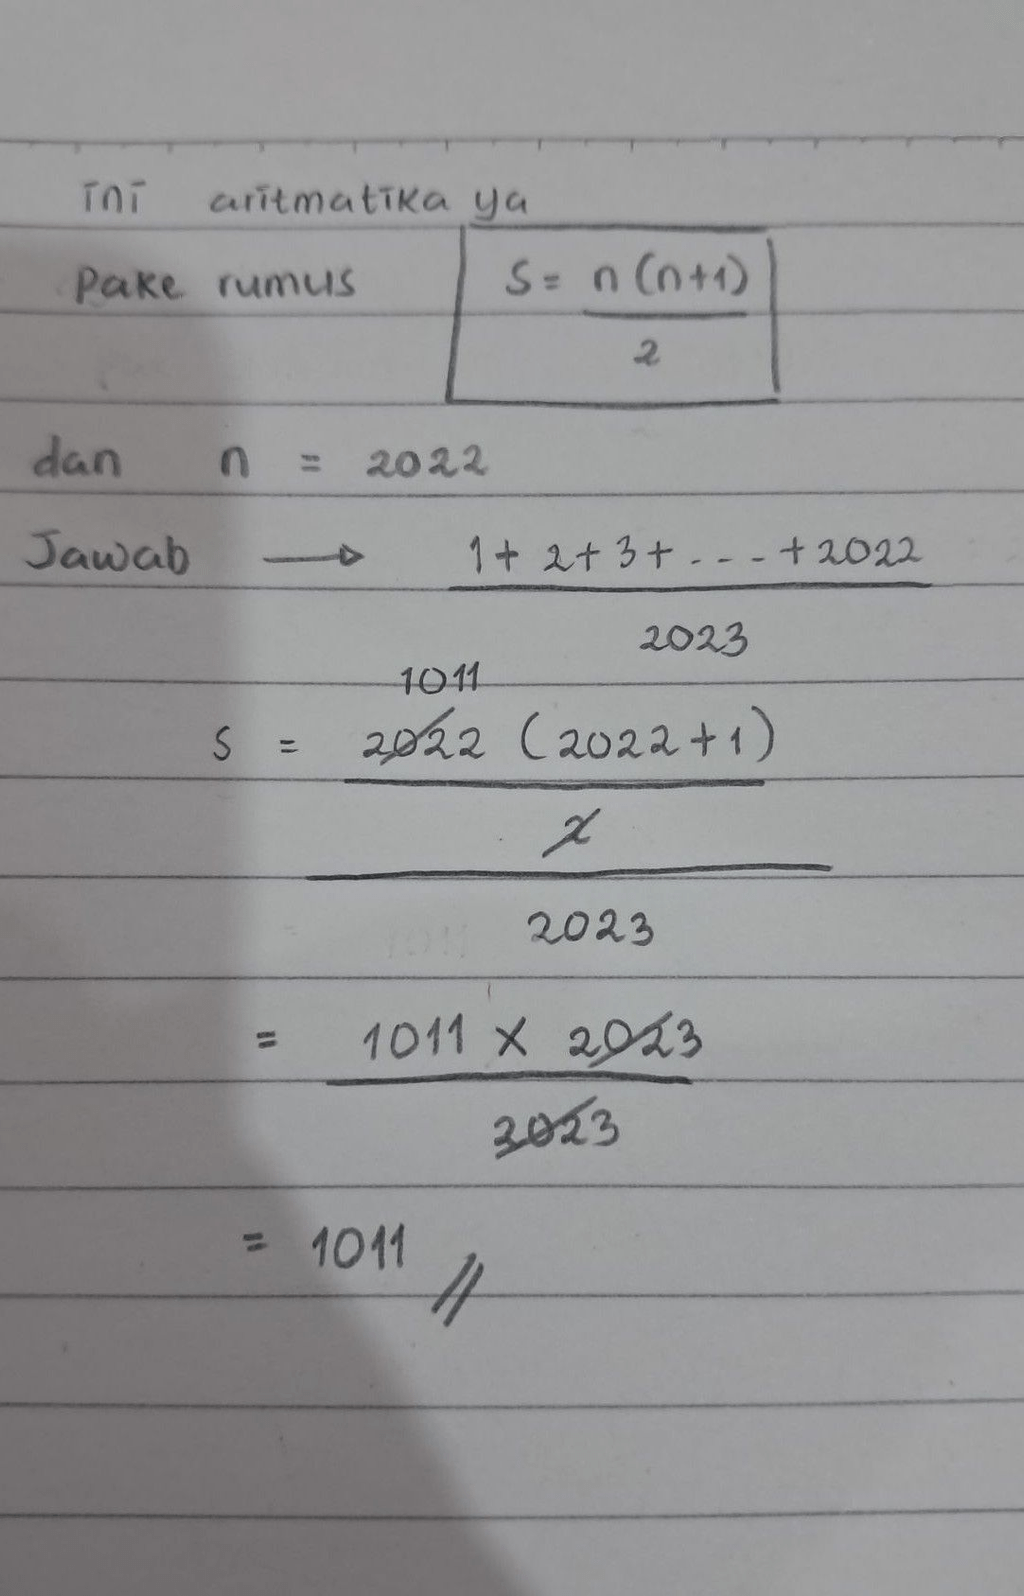 ini aritmatika ya
Pake rumus S = n(n+1)
2
dan n = 2022
Jawab → 1+ 2+ 3+ . - - - + 2022
2023
1011
S = 2022 (2022+1)
2
2023
= 1011 × 2023
2023
= 1011 //